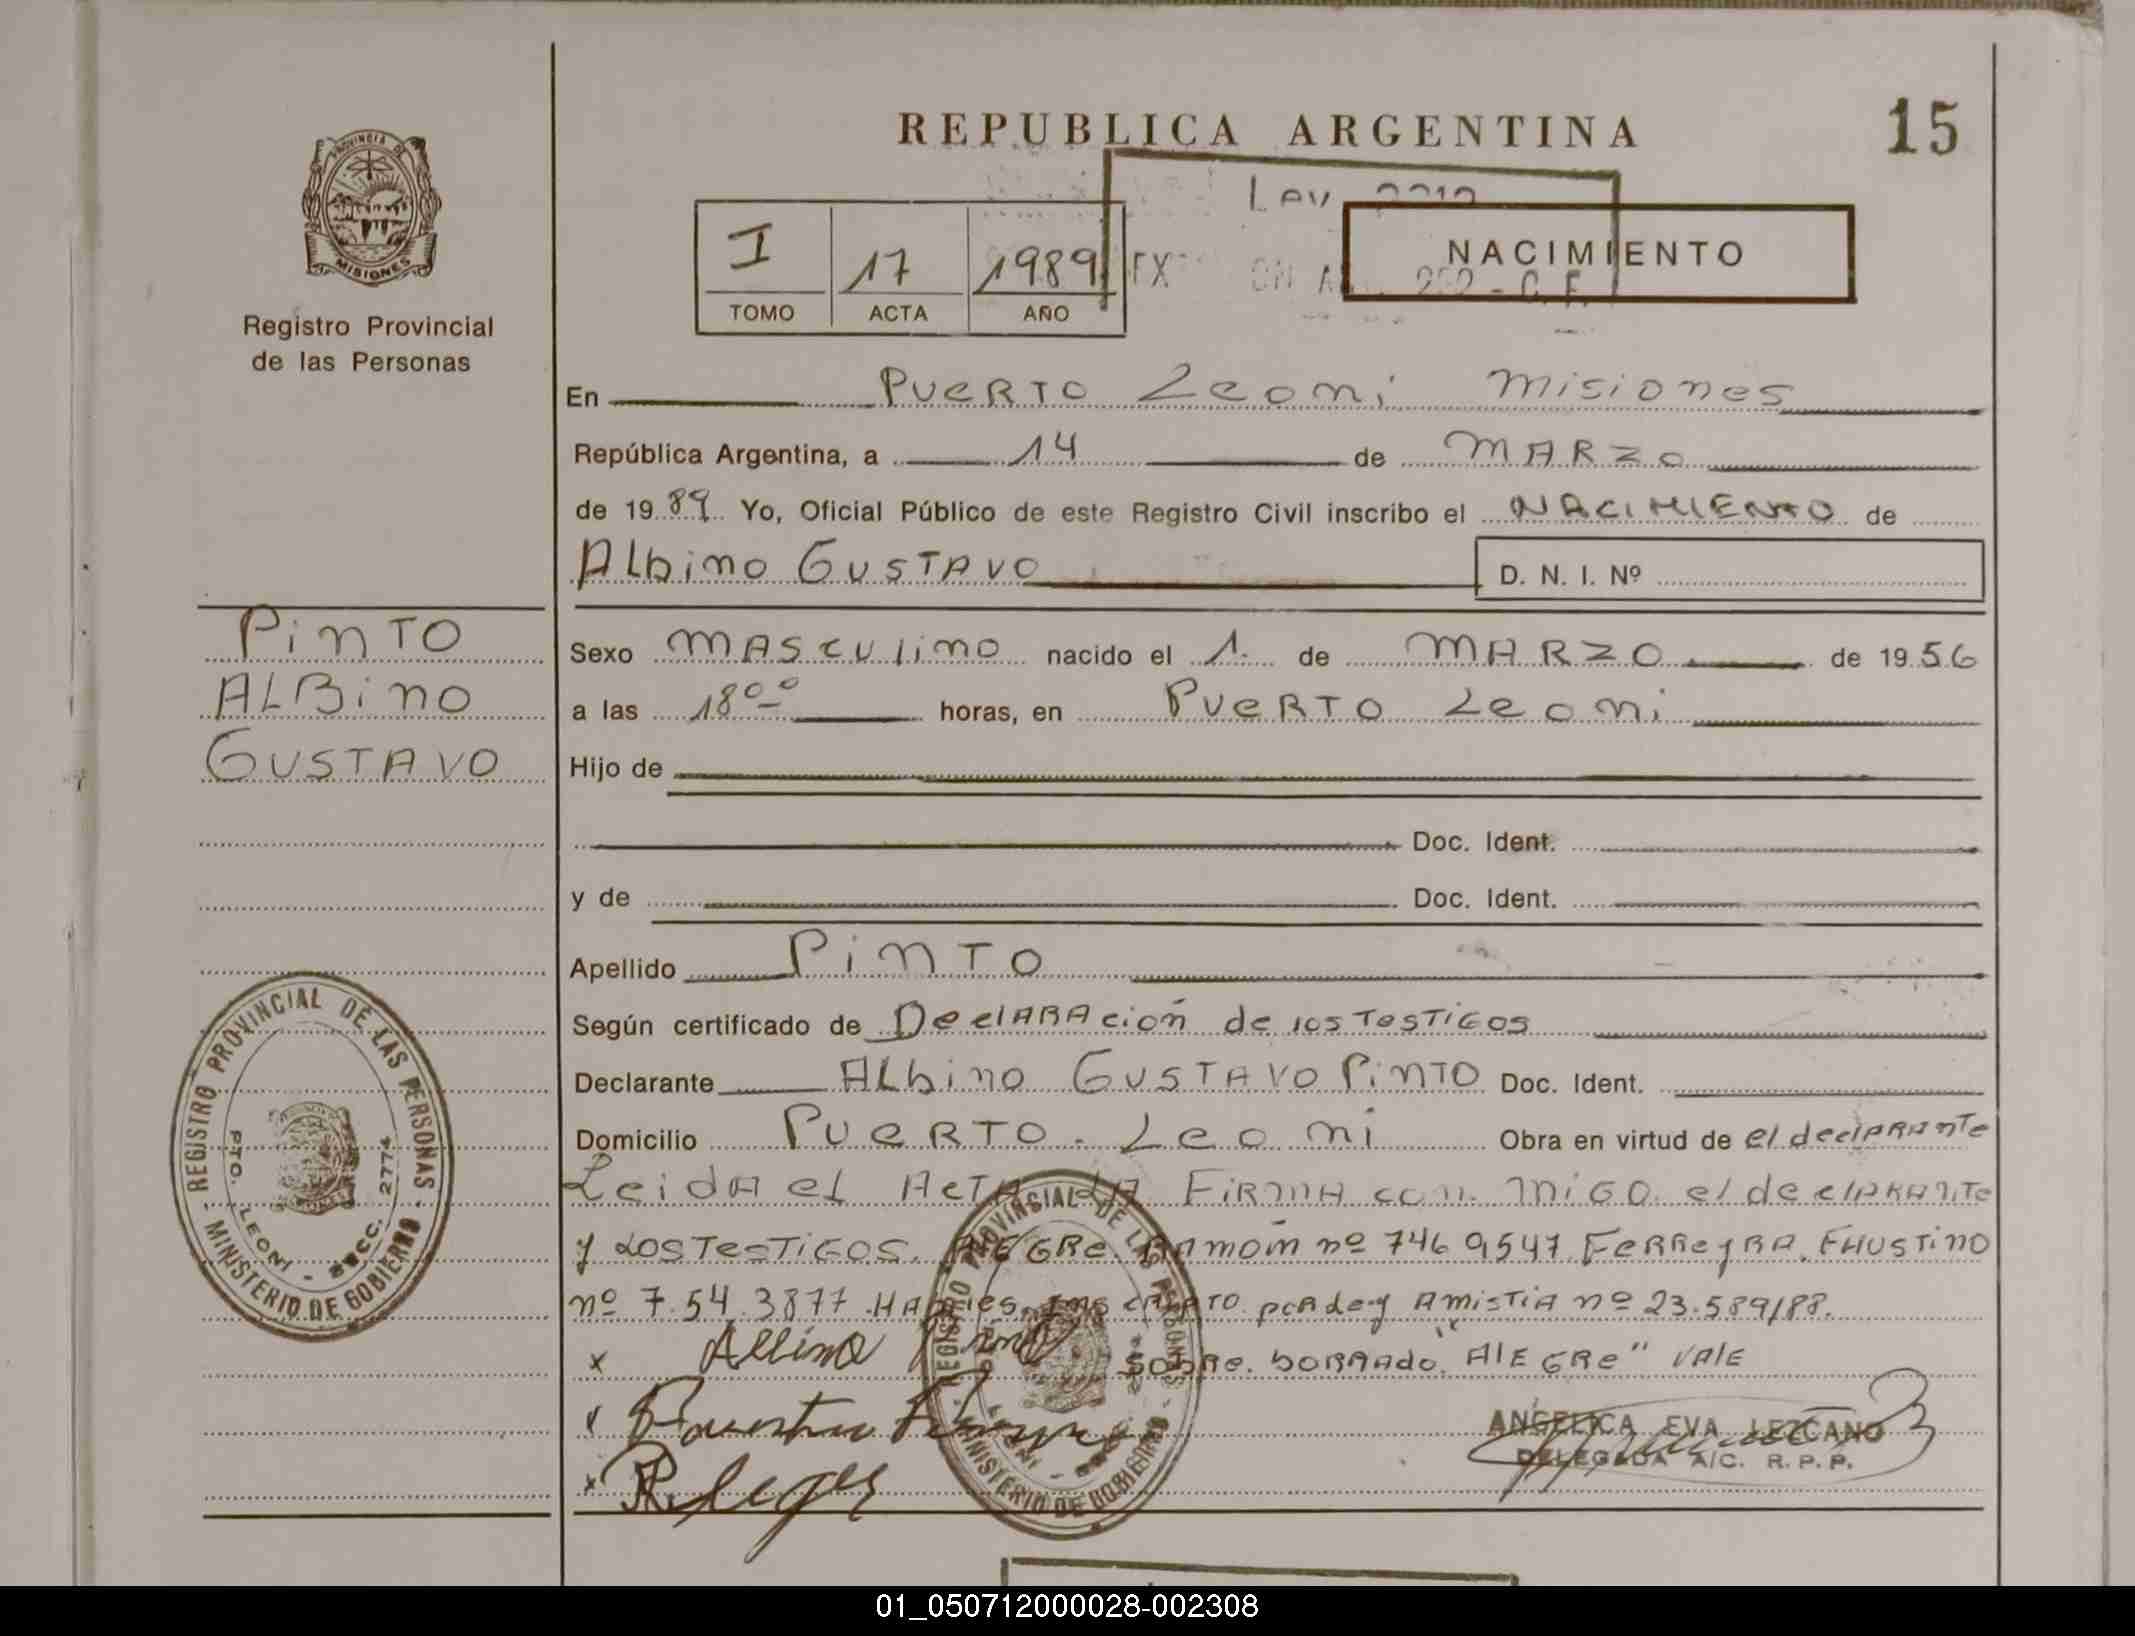 REPUBLICA ARGENTINA
15
PROVINCIA DE
MISIONES
Registro Provincial
de las Personas
I 17 1989
TOMO ACTA AÑO
NACIMIENTO
En Puerto Leoni Misiones
República Argentina, a 14 de MARZO
de 1989 Yo, Oficial Público de este Registro Civil inscribo el NACIMIENTO de
Albino GUSTAVO
D. N. I. Nº
PiNTO
ALBiNO
GUSTAVO
Sexo MASCULiNO nacido el 1. de MARZO de 1956
a las 18⁰⁰ horas, en PUERTO Leoni
Hijo de
Doc. Ident.
y de Doc. Ident.
Apellido PiNTO
Según certificado de DeclARAción de los TesTiGos
Declarante ALbino GUSTAVO PiNTO Doc. Ident.
Domicilio PUERTO. Leoni Obra en virtud de el declARAnTe
Leida el ActA LA FiRMA con miGo el declARAnTe
y LosTesTiGos. AleGRe. RAmóm nº 746 9547 FeRReyRA. FAUSTiNO
nº 7.54.3877. poR Ley AmisTiA nº 23.589/88.
x Albino
sobRe. boRRAdo. "AlEGRe" VAlE
x
x
ANGELICA EVA LEZCANO
DELEGADA A/C. R. P. P.
REGISTRO PROVINCIAL DE LAS PERSONAS
PTO. LEONI - SECC. 2774
MINISTERIO DE GOBIERNO
REGISTRO PROVINSIAL DE LAS PERSONAS
MINISTERIO DE GOBIERNO
01_050712000028-002308